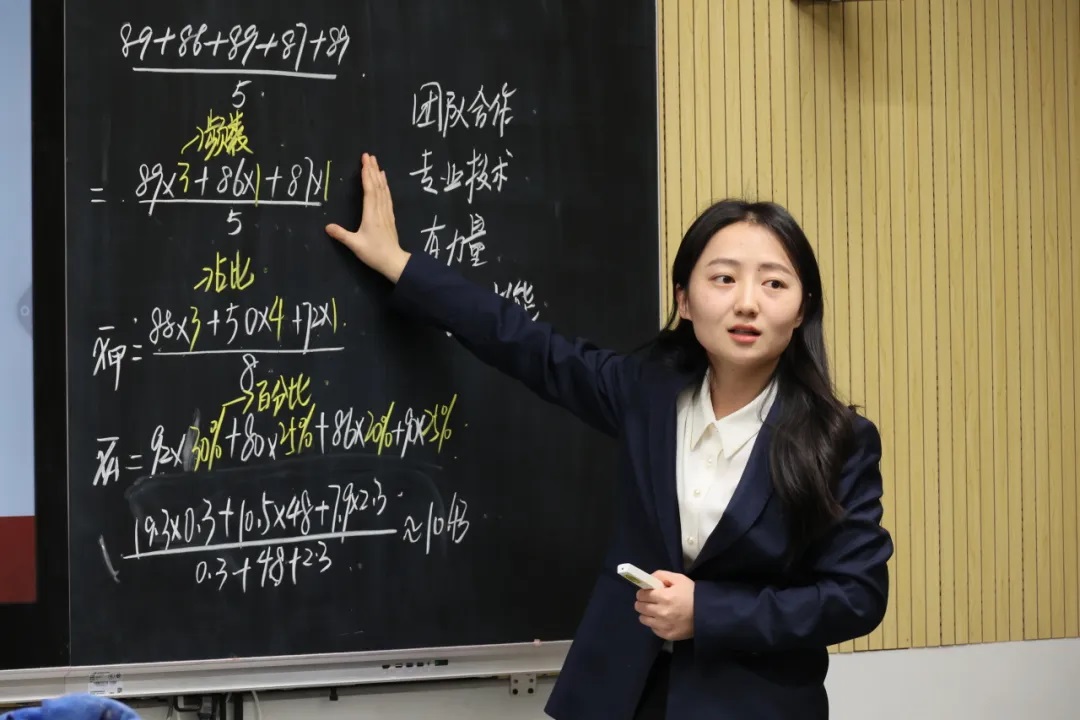 89+86+89+87+89
5
→频数
= 89×3+86×1+87×1
5
→占比
x̄甲= 88×3+50×4+72×1
8
→百分比
= 92×30%+80×25%+86×20%+90×25%
19.3×0.3+10.5×48+7.9×2.3
0.3+48+2.3
≈10.43
团队合作
专业技术
有力量
能